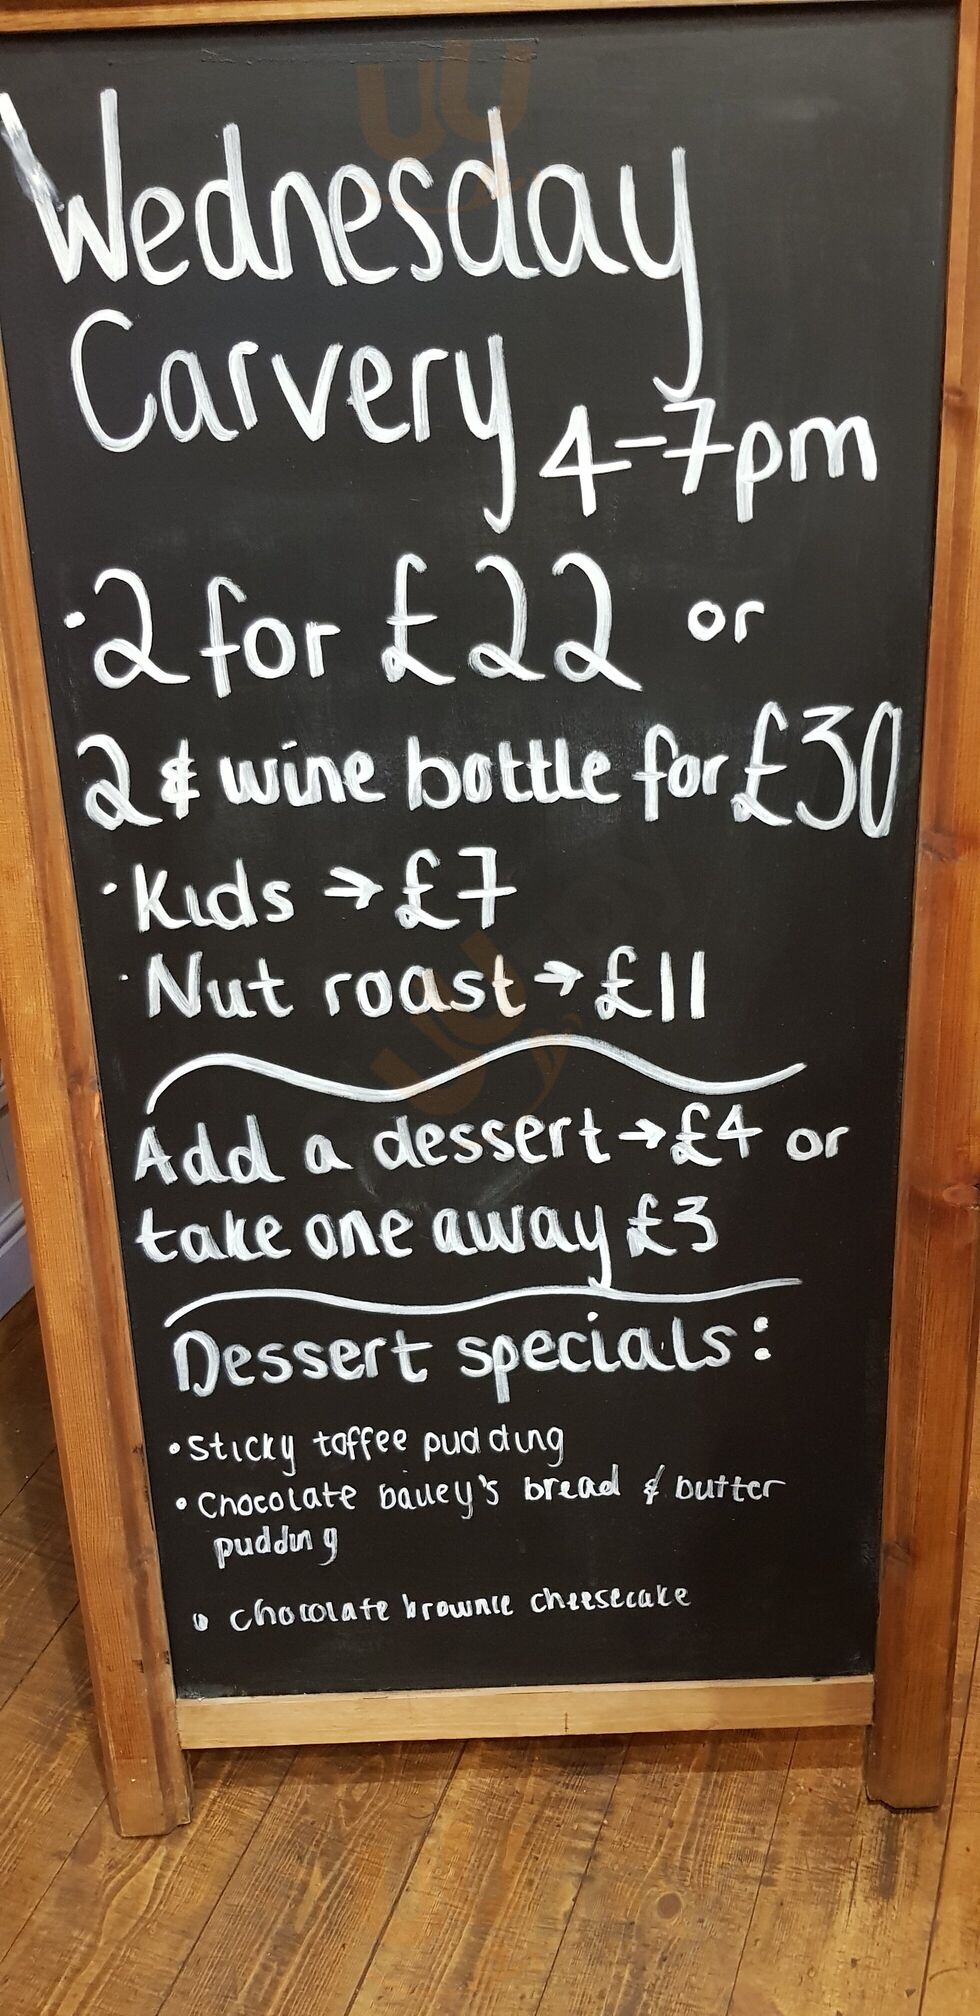 Wednesday
Carvery
4-7pm
·2 for £22 or
2 & wine bottle for £30
·Kids → £7
·Nut roast → £11
Add a dessert → £4 or
take one away £3
Dessert specials:
•Sticky toffee pudding
•Chocolate bailey's bread & butter
pudding
• Chocolate brownie cheesecake